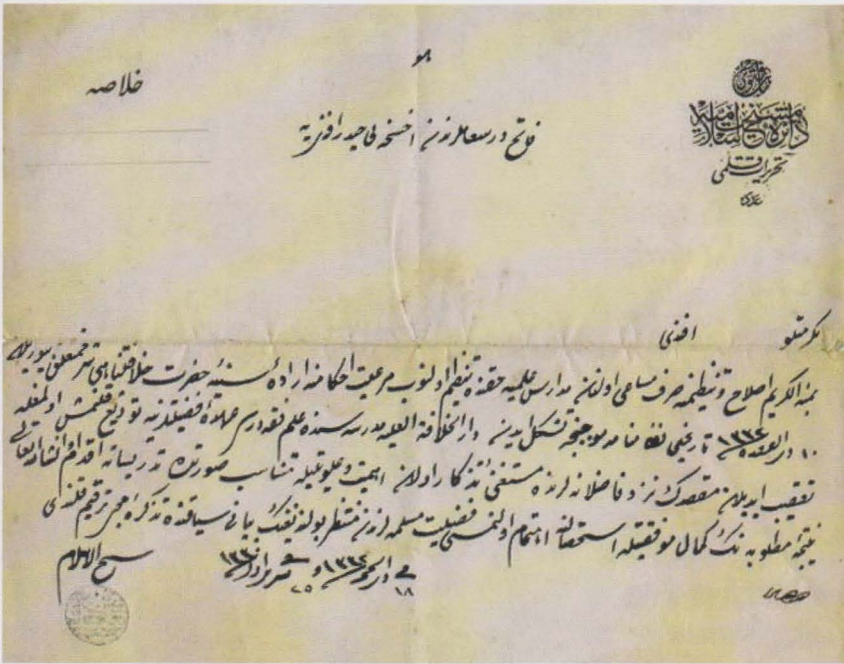 هو
دائرهٔ مشیخت اسلامیه
تحریرات قلمی
عدد
خلاصه
فاتح درسعاملرندن اخسخه لی حیدر افندی یه
مكرمتلو افندی
بمنه الكریم اصلاح و تنظیمنه صرف مساعی اولنان مدارس علمیه حقنده تنظیم اولنوب مرعیت احكامنه ارادهٔ سنیهٔ حضرت خلافتپناهی شرفمتعلق بیوریلان
١٠ ذی القعده ١٣٣٢ تاریخلی نظامنامه موجبنجه تشكل ایدن دار الخلافة العلیه مدرسه سنده علم فقه درسی عهدهٔ فضیلتلرینه توزیع قلنمش اولمغله
تعقیب ایدیلان مقصدك نزد فاضلانه لرنده مستغنیٔ تذكار اولان اهمیت و علویتیله متناسب صورتده تدریساته اقدام انشاء الله تعالی
نتیجهٔ مطلوبه نك كمال موفقیتله استحصالنه اهتمام اولنمسی فضیلت مسلمه لرندن منتظر بولندیغنك بیانی سیاقنده تذكرهٔ مجری ترقیم قلندی
فی ١٨ ذی الحجه ١٣٣٢ و فی ٢٥ تشرین اول ١٣٣٠
شیخ الاسلام